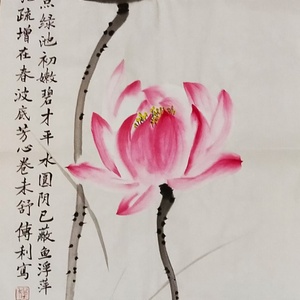 綠池初嫩碧才平水圓阴已蔽魚浮萍
疏增在春波底芳心卷未舒 傅利寫